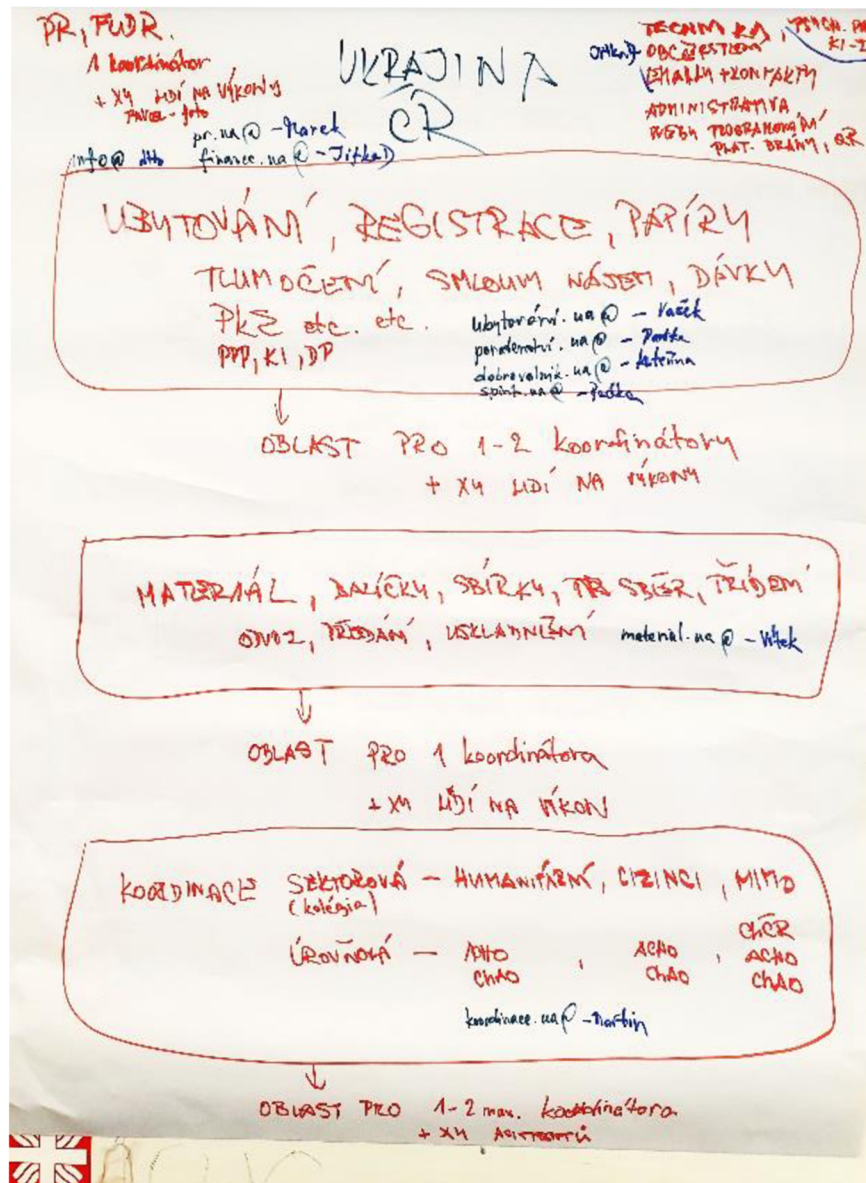 PR, FWDR.
1 koordinátor
+ X4 LIDÍ NA VÝKONY
PAVEL - foto
pr.ua@ - Marek
info@ dtto finance.ua@ - Jitka D
UKRAJINA
ČR
TECHNIKA,
OBČERSTVENÍ
EMAILY + KONTAKTY
ADMINISTRATIVA
WEBY PROGRAMOVÁNÍ
PLAT. BRÁNY, QR
UBYTOVÁNÍ, REGISTRACE, PAPÍRY
TLUMOČENÍ, SMLOUVY NÁJEM, DÁVKY
etc. etc.
PVP, KI, DP
ubytování.ua@ - Vašek
poradenství.ua@ - Radka
dobrovolník.ua@ - Kateřina
.ua@ - Radka
OBLAST PRO 1-2 koordinátory
+ X4 LIDÍ NA VÝKONY
MATERIÁL, BALÍČKY, SBÍRKY, SBĚR, TŘÍDĚNÍ
ODVOZ, PŘEDÁNÍ, USKLADNĚNÍ material.ua@ - Vítek
OBLAST PRO 1 koordinátora
+ X4 LIDÍ NA VÝKON
KOORDINACE SEKTOROVÁ - HUMANITÁRNÍ, CIZINCI, MIMO
(kolégia)
ÚROVŇOVÁ - ACHO, ACHO, CHČR
CHAO CHAO ACHO
CHAO
koordinace.ua@ - Martin
OBLAST PRO 1-2 max. koordinátora
+ X4 ASISTENTŮ